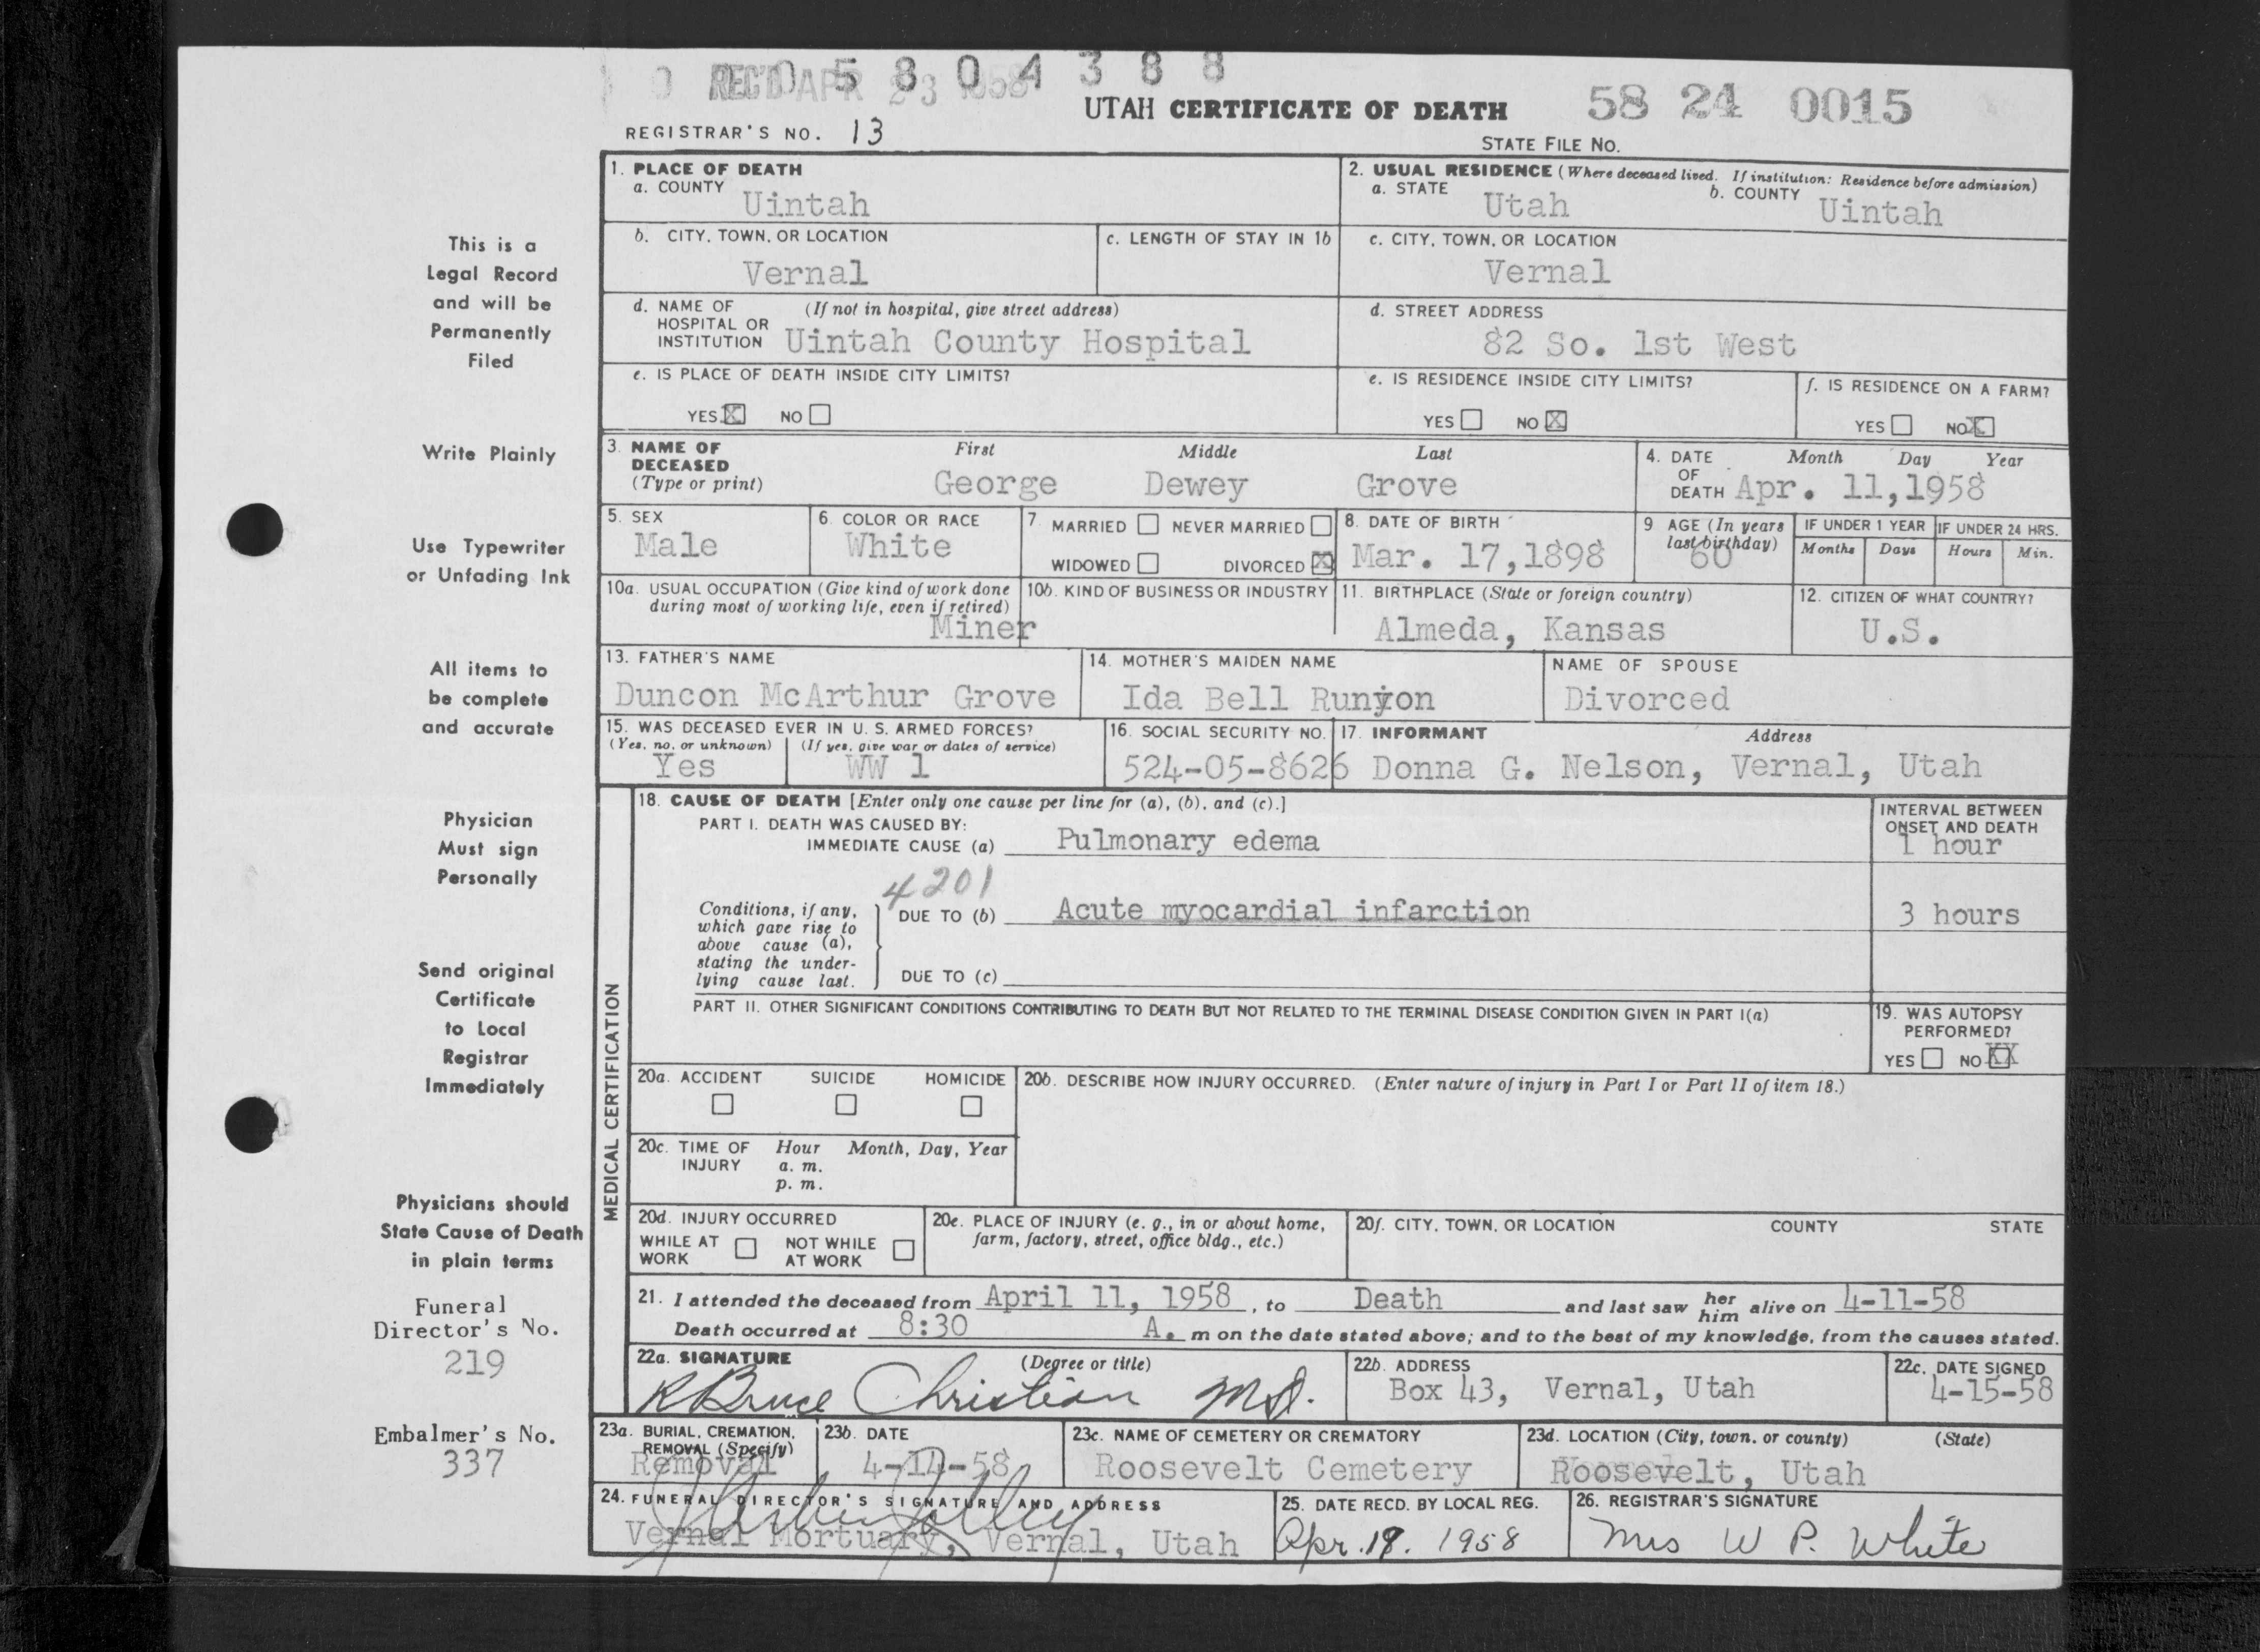 REC'D APR 23 1958
0 5 8 0 4 3 8 8
UTAH CERTIFICATE OF DEATH
58 24 0015
REGISTRAR'S NO. 13
STATE FILE NO.
1. PLACE OF DEATH
a. COUNTY Uintah
2. USUAL RESIDENCE (Where deceased lived. If institution: Residence before admission)
a. STATE Utah b. COUNTY Uintah
b. CITY, TOWN, OR LOCATION Vernal
c. LENGTH OF STAY IN 1b
c. CITY, TOWN, OR LOCATION Vernal
d. NAME OF HOSPITAL OR INSTITUTION (If not in hospital, give street address) Uintah County Hospital
d. STREET ADDRESS 82 So. 1st West
e. IS PLACE OF DEATH INSIDE CITY LIMITS?
YES X NO
e. IS RESIDENCE INSIDE CITY LIMITS?
YES NO X
f. IS RESIDENCE ON A FARM?
YES NO X
3. NAME OF DECEASED (Type or print)
First Middle Last
George Dewey Grove
4. DATE OF DEATH Month Day Year
Apr. 11,1958
5. SEX Male
6. COLOR OR RACE White
7. MARRIED NEVER MARRIED
WIDOWED DIVORCED X
8. DATE OF BIRTH Mar. 17,1898
9 AGE (In years last birthday) 60
IF UNDER 1 YEAR Months Days
IF UNDER 24 HRS. Hours Min.
10a. USUAL OCCUPATION (Give kind of work done during most of working life, even if retired) Miner
10b. KIND OF BUSINESS OR INDUSTRY
11. BIRTHPLACE (State or foreign country) Almeda, Kansas
12. CITIZEN OF WHAT COUNTRY? U.S.
13. FATHER'S NAME Duncon McArthur Grove
14. MOTHER'S MAIDEN NAME Ida Bell Runyon
NAME OF SPOUSE Divorced
15. WAS DECEASED EVER IN U. S. ARMED FORCES?
(Yes, no, or unknown) Yes (If yes, give war or dates of service) WW 1
16. SOCIAL SECURITY NO. 524-05-8626
17. INFORMANT Address
Donna G. Nelson, Vernal, Utah
MEDICAL CERTIFICATION
18. CAUSE OF DEATH [Enter only one cause per line for (a), (b), and (c).]
INTERVAL BETWEEN ONSET AND DEATH
PART I. DEATH WAS CAUSED BY:
IMMEDIATE CAUSE (a) Pulmonary edema 1 hour
4201
Conditions, if any, which gave rise to above cause (a), stating the underlying cause last.
DUE TO (b) Acute myocardial infarction 3 hours
DUE TO (c)
PART II. OTHER SIGNIFICANT CONDITIONS CONTRIBUTING TO DEATH BUT NOT RELATED TO THE TERMINAL DISEASE CONDITION GIVEN IN PART I(a)
19. WAS AUTOPSY PERFORMED?
YES NO XX
20a. ACCIDENT SUICIDE HOMICIDE
20b. DESCRIBE HOW INJURY OCCURRED. (Enter nature of injury in Part I or Part II of item 18.)
20c. TIME OF INJURY Hour Month, Day, Year
a. m.
p. m.
20d. INJURY OCCURRED
WHILE AT WORK NOT WHILE AT WORK
20e. PLACE OF INJURY (e. g., in or about home, farm, factory, street, office bldg., etc.)
20f. CITY, TOWN, OR LOCATION COUNTY STATE
21. I attended the deceased from April 11, 1958, to Death and last saw her him alive on 4-11-58
Death occurred at 8:30 A. m on the date stated above; and to the best of my knowledge, from the causes stated.
22a. SIGNATURE (Degree or title)
R Bruce Christian MD.
22b. ADDRESS Box 43, Vernal, Utah
22c. DATE SIGNED 4-15-58
23a. BURIAL, CREMATION, REMOVAL (Specify) Removal
23b. DATE 4-14-58
23c. NAME OF CEMETERY OR CREMATORY Roosevelt Cemetery
23d. LOCATION (City, town, or county) (State) Roosevelt, Utah
24. FUNERAL DIRECTOR'S SIGNATURE AND ADDRESS
Vernal Mortuary, Vernal, Utah
25. DATE RECD. BY LOCAL REG. Apr. 19. 1958
26. REGISTRAR'S SIGNATURE Mrs W P. White
This is a
Legal Record
and will be
Permanently
Filed
Write Plainly
Use Typewriter
or Unfading Ink
All items to
be complete
and accurate
Physician
Must sign
Personally
Send original
Certificate
to Local
Registrar
Immediately
Physicians should
State Cause of Death
in plain terms
Funeral
Director's No.
219
Embalmer's No.
337